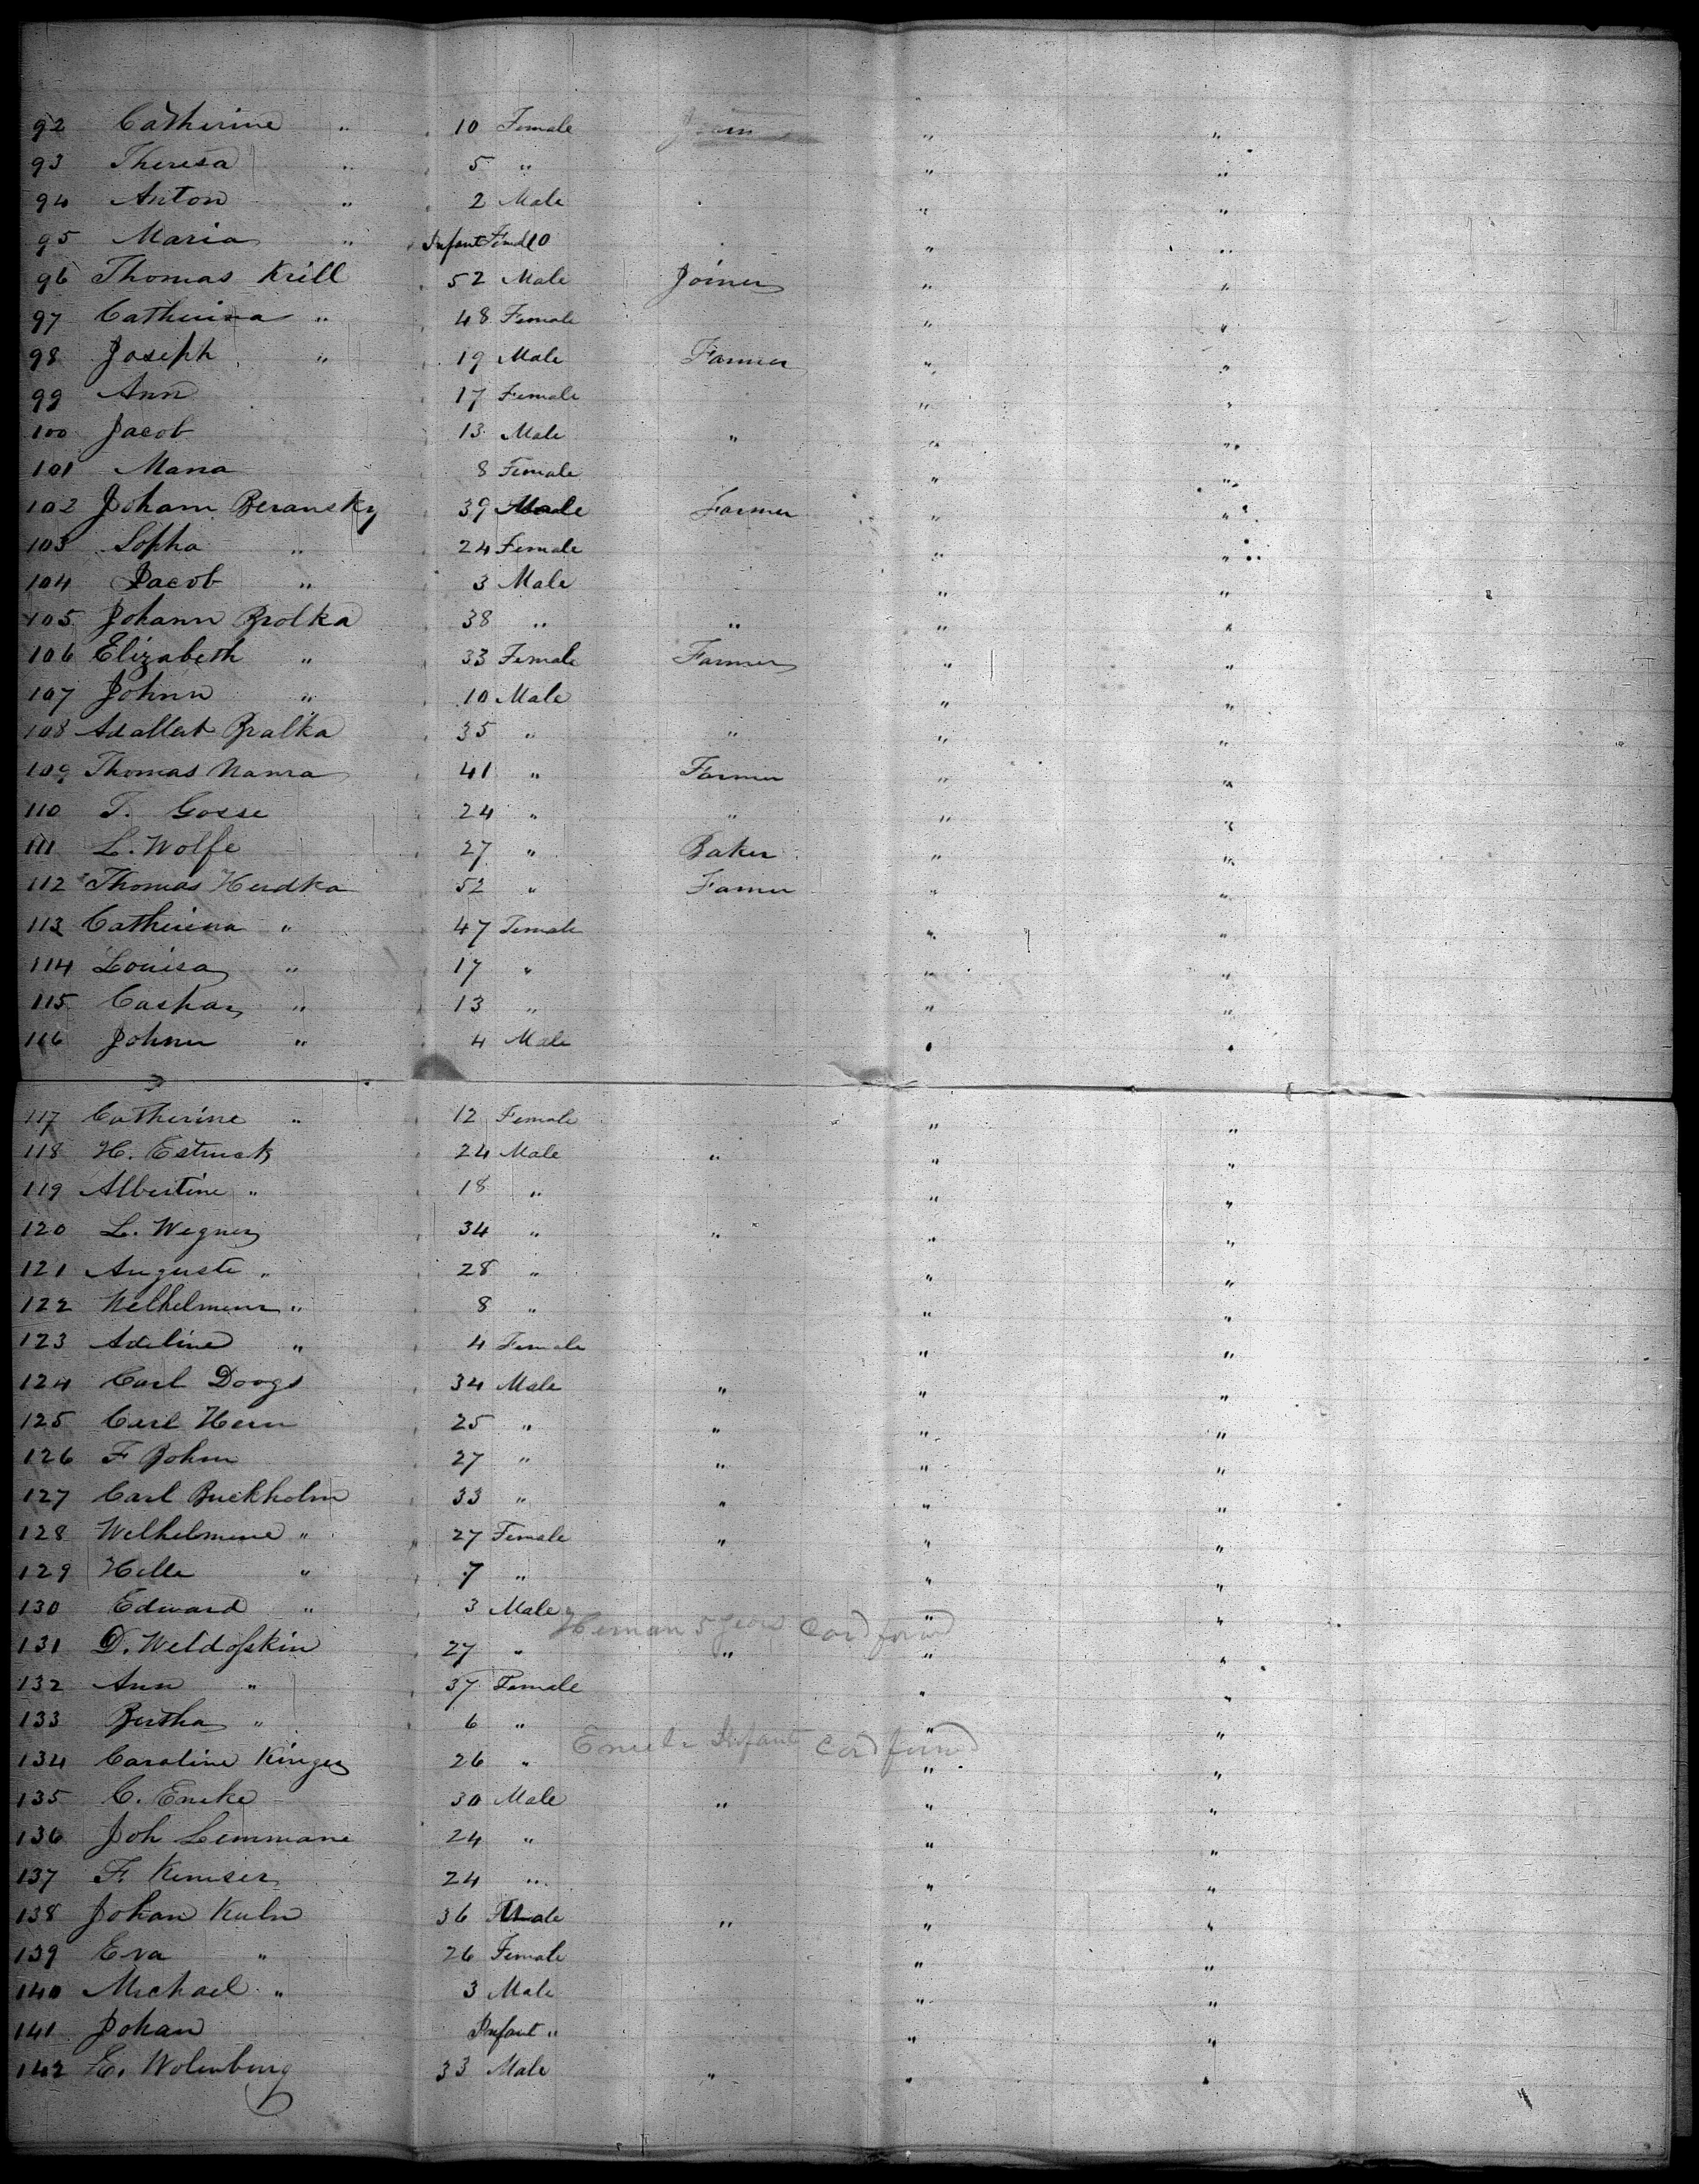 92 Catherine " 10 Female " "
93 Theresa " 5 " " "
94 Anton " 2 Male " "
95 Maria " Infant Female " "
96 Thomas Krill 52 Male Joiner " "
97 Catherina " 48 Female " "
98 Joseph " 19 Male Farmer " "
99 Ann 17 Female " "
100 Jacob 13 Male " " "
101 Maria 8 Female " "
102 Johann Beransky 39 Male Farmer " "
103 Sopha " 24 Female " "
104 Jacob " 3 Male " "
105 Johann Brolka 38 " " " "
106 Elizabeth " 33 Female Farmer " "
107 Johnn " 10 Male " "
108 Adallert Bralka 35 " " " "
109 Thomas Namra 41 " Farmer " "
110 T. Gosse 24 " " " "
111 L. Wolfe 27 " Baker " "
112 Thomas Hurdka 52 " Farmer " "
113 Catherina " 47 Female " "
114 Louisa " 17 " " "
115 Caspar " 13 " " "
116 Johnn " 4 Male " "
117 Catherine " 12 Female " "
118 H. 24 Male " " "
119 Albertine " 18 " " "
120 L. Wegner 34 " " " "
121 Auguste " 28 " " "
122 Welhelmina " 8 " " "
123 Adeline " 4 Female " "
124 Carl Doogs 34 Male " " "
125 Carl Hern 25 " " " "
126 F Bohm 27 " " " "
127 Carl Buckholm 33 " " " "
128 Welhelmine " 27 Female " " "
129 Helle " 7 " " "
130 Edward " 3 Male " "
Herman 5 years
131 D. Weldofskin 27 " " " "
132 Ann " 37 Female " "
133 Bertha " 6 " " "
Infant
134 Caroline Kinger 26 " " "
135 C. Encke 30 Male " " "
136 Joh Lemmane 24 " " "
137 F. Kemser 24 " " "
138 Johan Kuln 36 Male " " "
139 Eva " 26 Female " "
140 Michael " 3 Male " "
141 Johan Infant " " "
142 E. Wolenburg 33 Male " " "